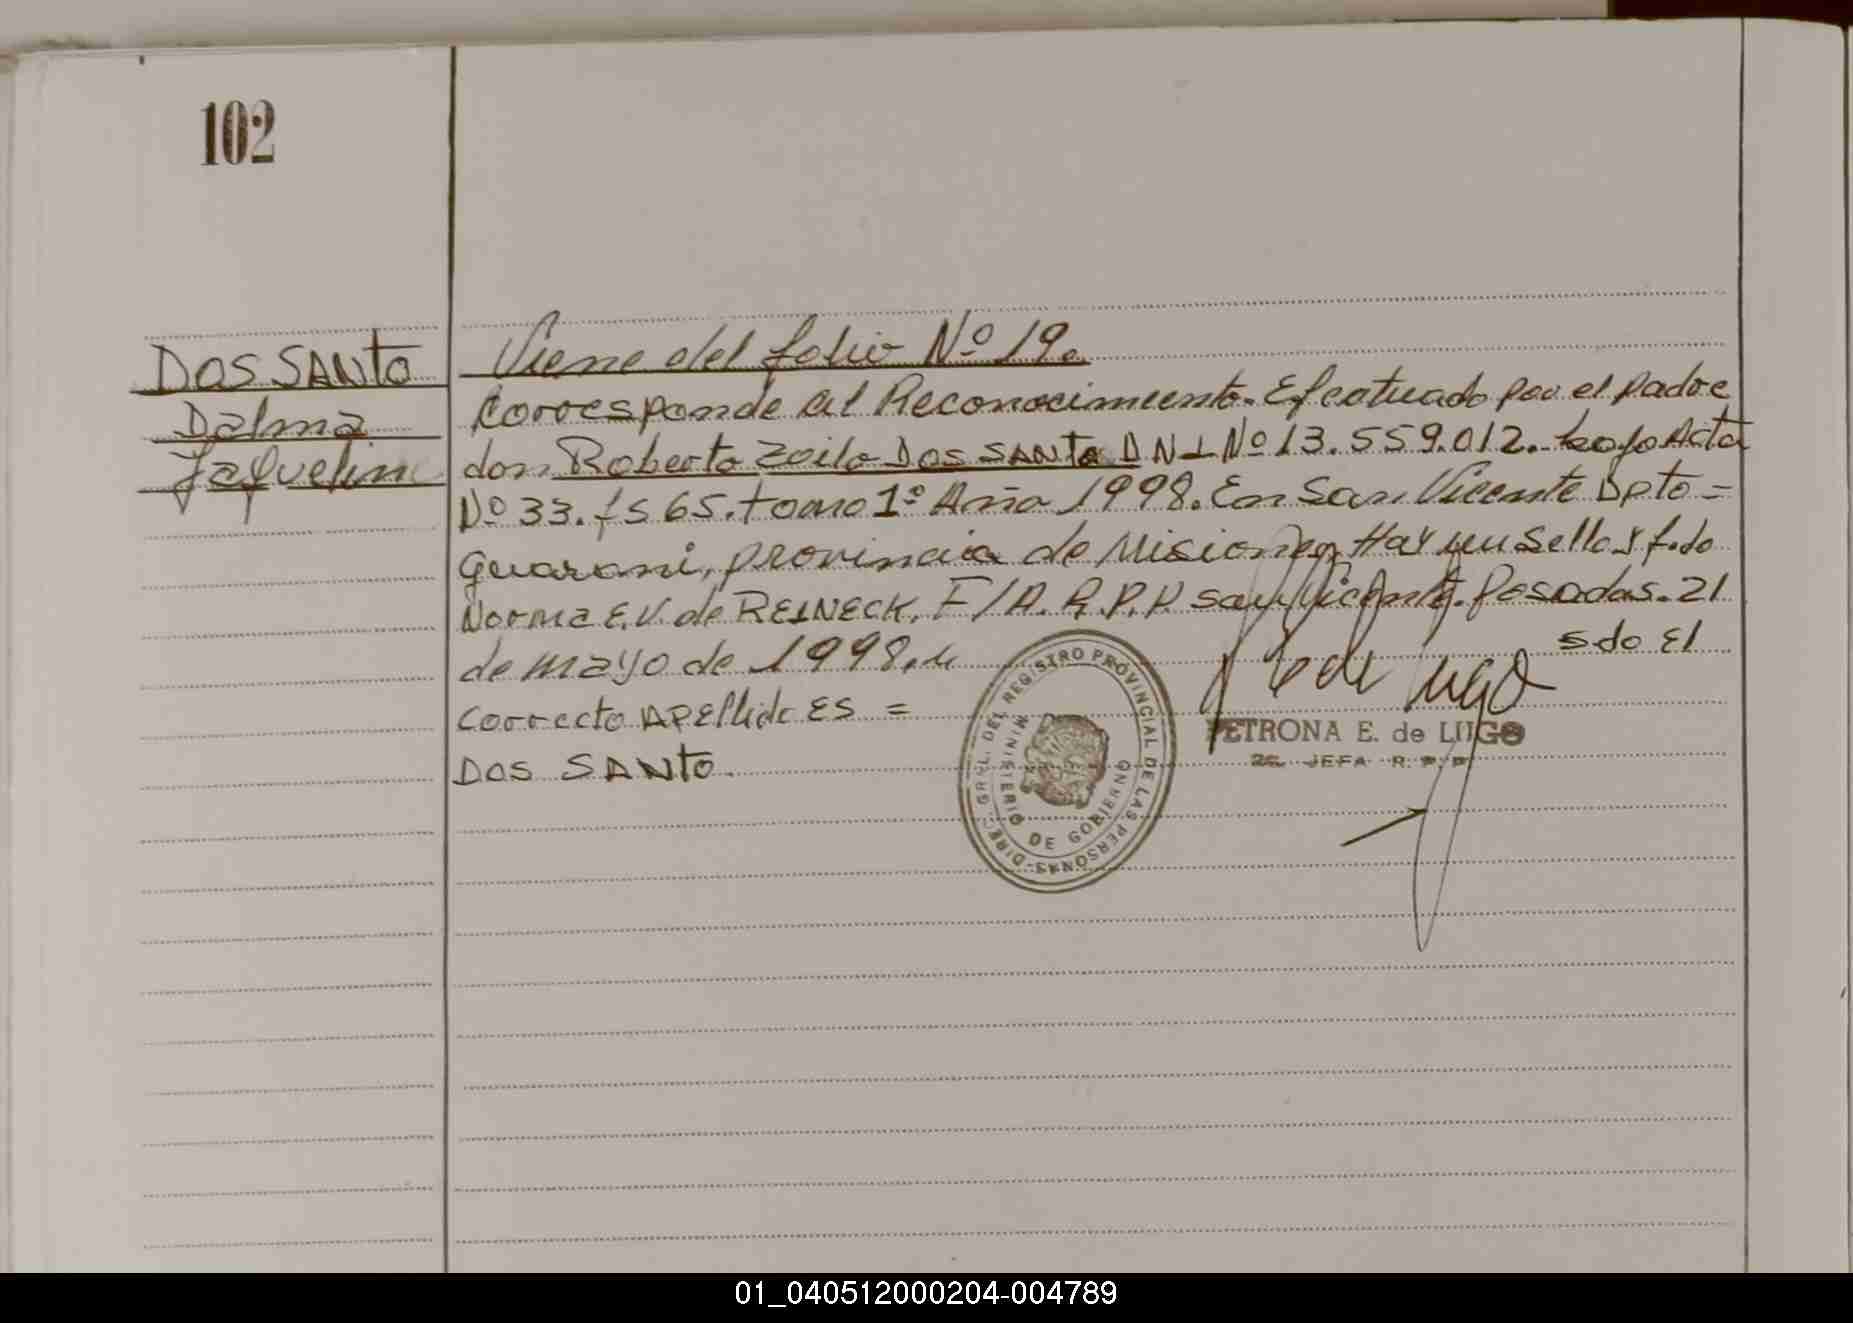 102
DOS SANto
Dalma
Jaquelin
Viene del folio Nº 19.
Corresponde al Reconocimiento. Efectuado por el padre
don Roberto Zoilo Dos SANto DNI Nº 13.559.012. bajo Acta
Nº 33. fs 65. tomo 1º Año 1998. En San Vicente Dpto =
Guarani, provincia de Misiones, Hay un Sello y f.do
Norma E.V. de REINECK. F/A.R.P.P. San Vicente. Posadas. 21
de mayo de 1998.
s.do El
Correcto APEllido ES =
DOS SANto.
DIREC. GRAL. DEL REGISTRO PROVINCIAL DE LAS PERSONAS
MINISTERIO DE GOBIERNO
PETRONA E. de LUGO
JEFA R. P. P.
01_040512000204-004789